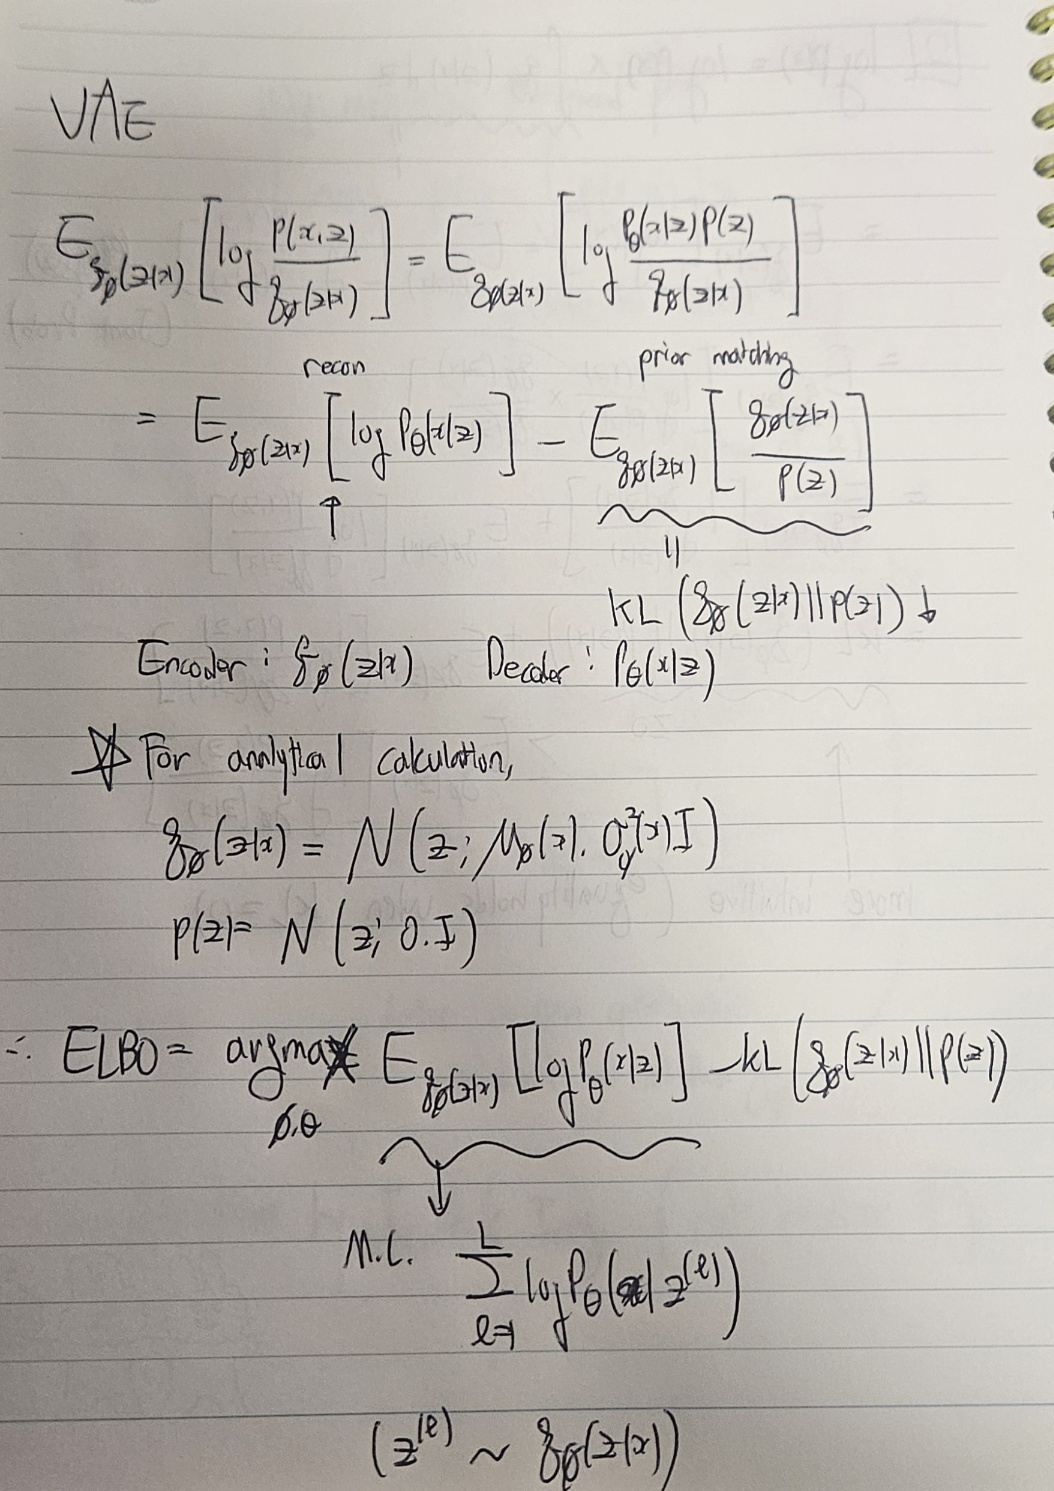 VAE
E_{q_ø(z|x)} [log P(x,z) / q_ø(z|x)] = E_{q_ø(z|x)} [log P_θ(x|z)P(z) / q_ø(z|x)]
recon prior matching
= E_{q_ø(z|x)} [log P_θ(x|z)] - E_{q_ø(z|x)} [q_ø(z|x) / P(z)]
↑ 〃
KL (q_ø(z|x)||P(z)) ↓
Encoder: q_ø(z|x) Decoder: P_θ(x|z)
☆ For analytical calculation,
q_ø(z|x) = N(z; μ_ø(x), σ_ø²(x)I)
P(z) = N(z; 0.I)
∴ ELBO = argmax_{ø,θ} E_{q_ø(z|x)} [log P_θ(x|z)] - KL(q_ø(z|x)||P(z))
↓
M.C. Σ_{l=1}^{L} log P_θ(x|z^{(l)})
(z^{(l)} ~ q_ø(z|x))